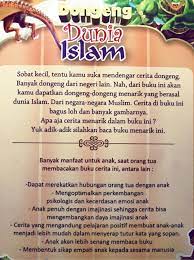 Dongeng
Dunia
Islam
Sobat kecil, tentu kamu suka mendengar cerita dongeng.
Banyak dongeng dari negeri lain. Nah, dari buku ini akan
kamu dapatkan dongeng-dongeng menarik yang berasal
dunia Islam. Dari negara-negara Muslim. Cerita di buku ini
bagus loh dan banyak gambarnya.
Apa aja cerita menarik dalam buku ini ?
Yuk adik-adik silahkan baca buku menarik ini.
Banyak manfaat untuk anak, saat orang tua
membacakan buku cerita ini, antara lain :
-Dapat merekatkan hubungan orang tua dengan anak
- Mengoptimalkan perkembangan
psikologis dan kecerdasan emosi anak
- Anak penuh dengan imajinasi sehingga cerita bisa
mengembangkan daya imajinasi anak
- Cerita yang mengandung pelajaran positif membuat anak-anak
menjadi lebih mudah dalam menyerap tutur kata yang sopan.
- Anak akan lebih senang membaca buku
- Membentuk sikap empati anak kepada sesama manusia